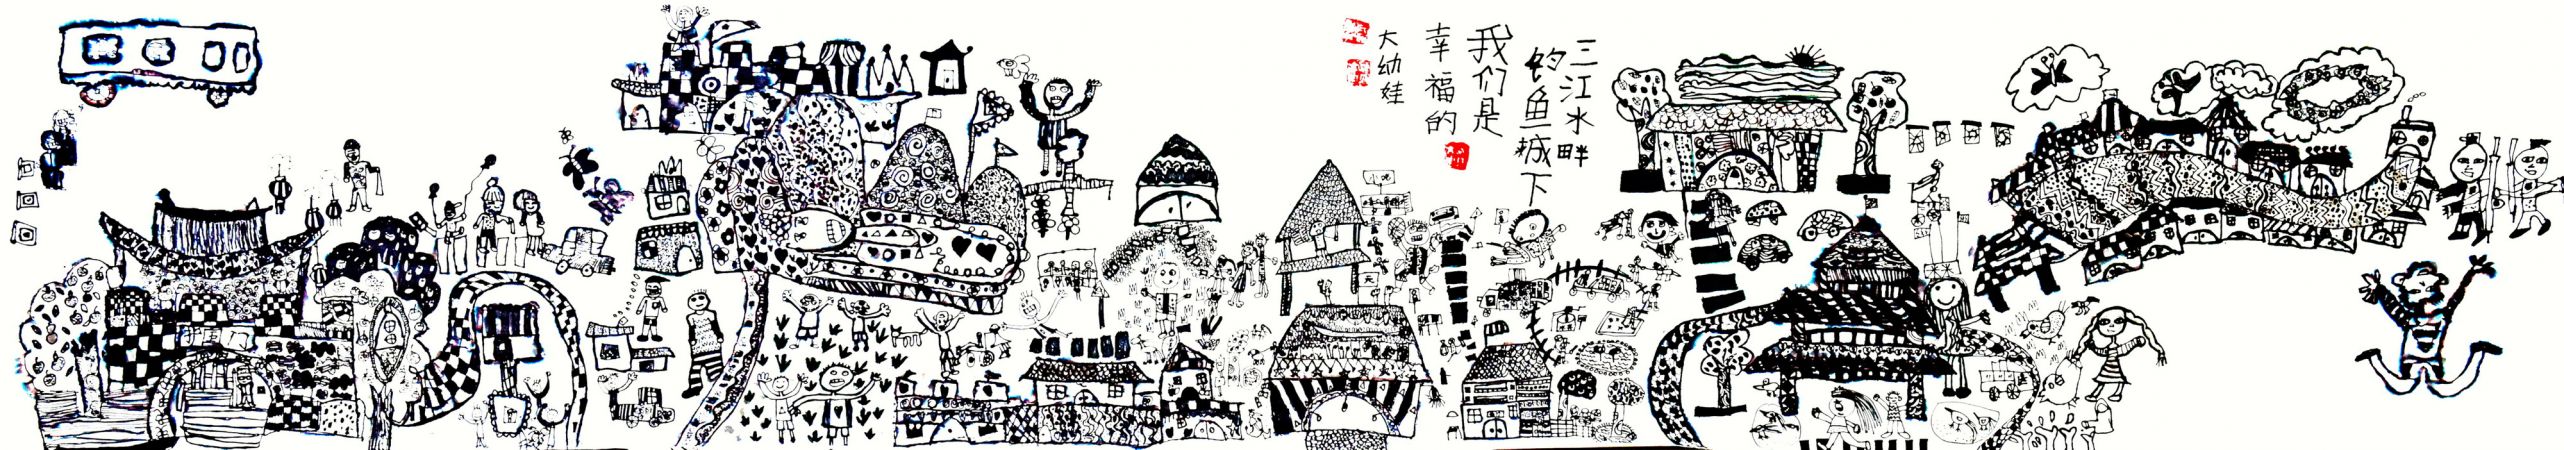 三江水畔
钓鱼城下
我们是
幸福的
大幼娃